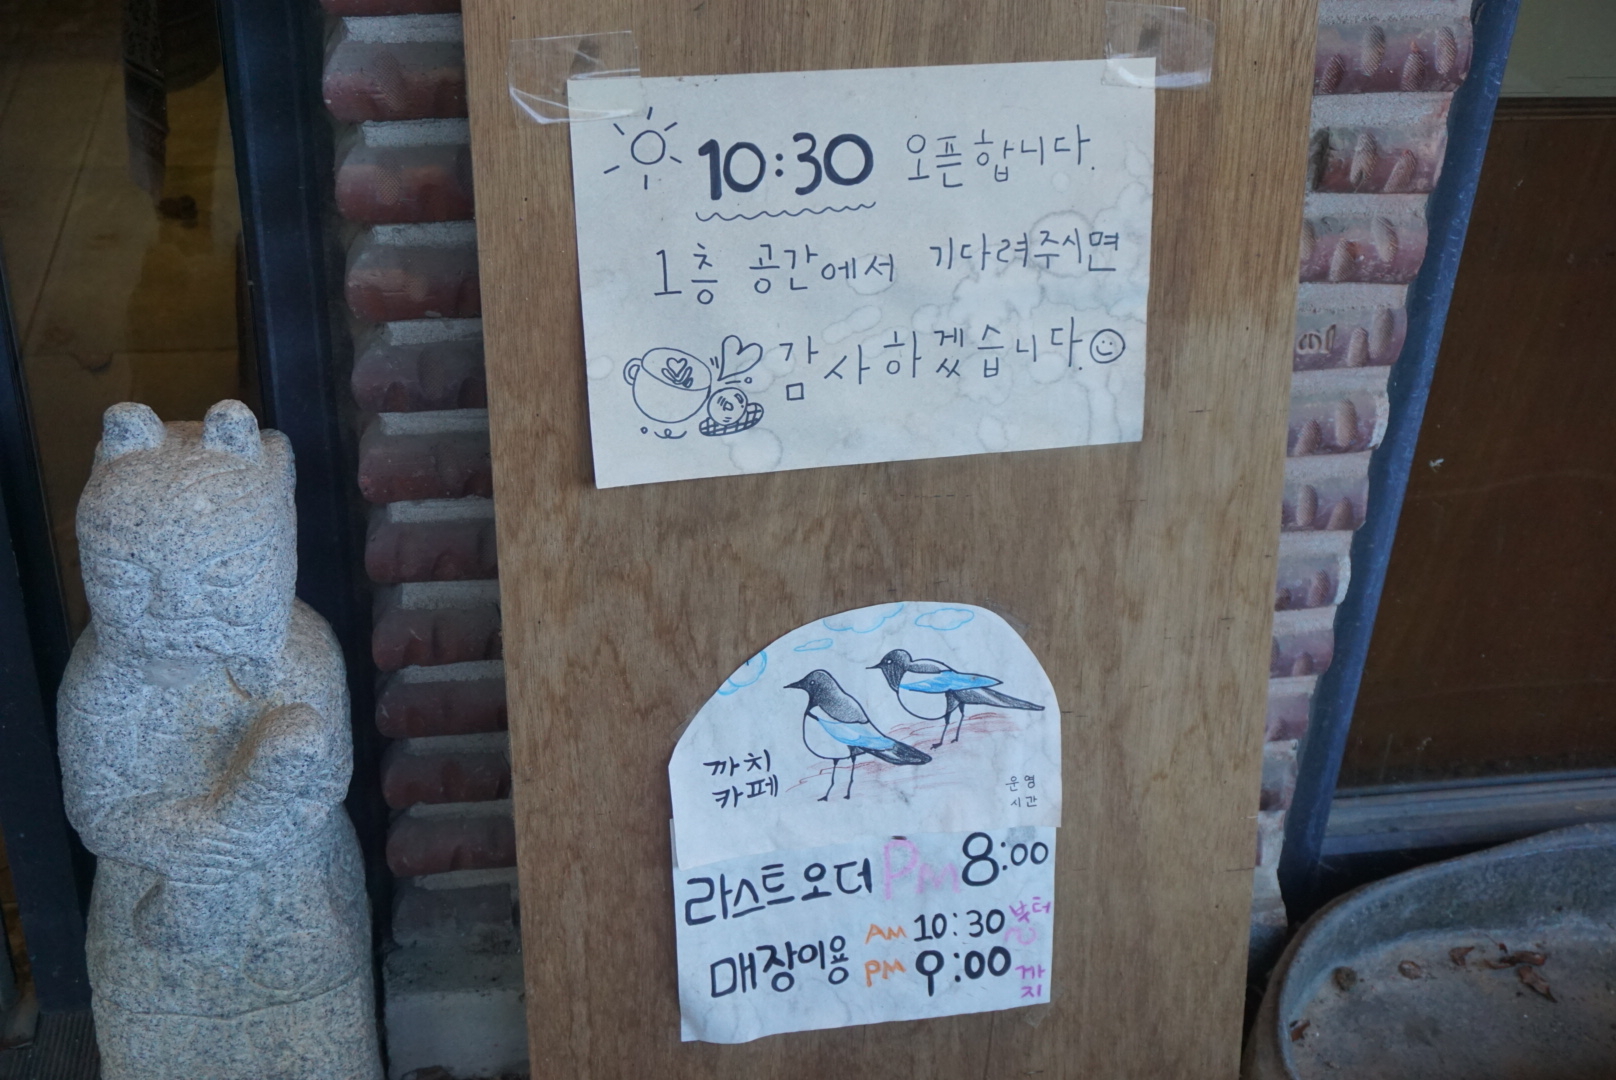 10:30 오픈합니다.
1층 공간에서 기다려주시면
감사하겠습니다.
까치
카페
운영
시간
라스트오더 PM 8:00
매장이용 AM 10:30 부터
PM 9:00 까지